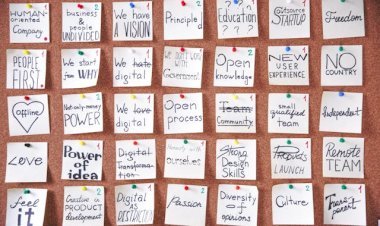 HUMAN-
oriented
Company
business
&
people
UNDIVIDED
We have
a VISION
Principled
???
Education
???
Outsource
STARTUP
Freedom
PEOPLE
FIRST
We start
from WHY
We hate
digital
We don't work
Government
Open
knowledge
NEW
USER
EXPERIENCE
NO
COUNTRY
offline
Not-only-money
POWER
We love
digital
Open
process
Team
Community
small
qualified
TEAM
Independent
Love
Power of
idea
Digital
transforma-
tion
with
ourselves
Strong
Design
Skills
Products
LAUNCH
Remote
TEAM
feel
it
Creative in
PRODUCT
development
Digital
as
RESTRICTED
Passion
Diversity
of
opinions
Culture
Trans-
parent